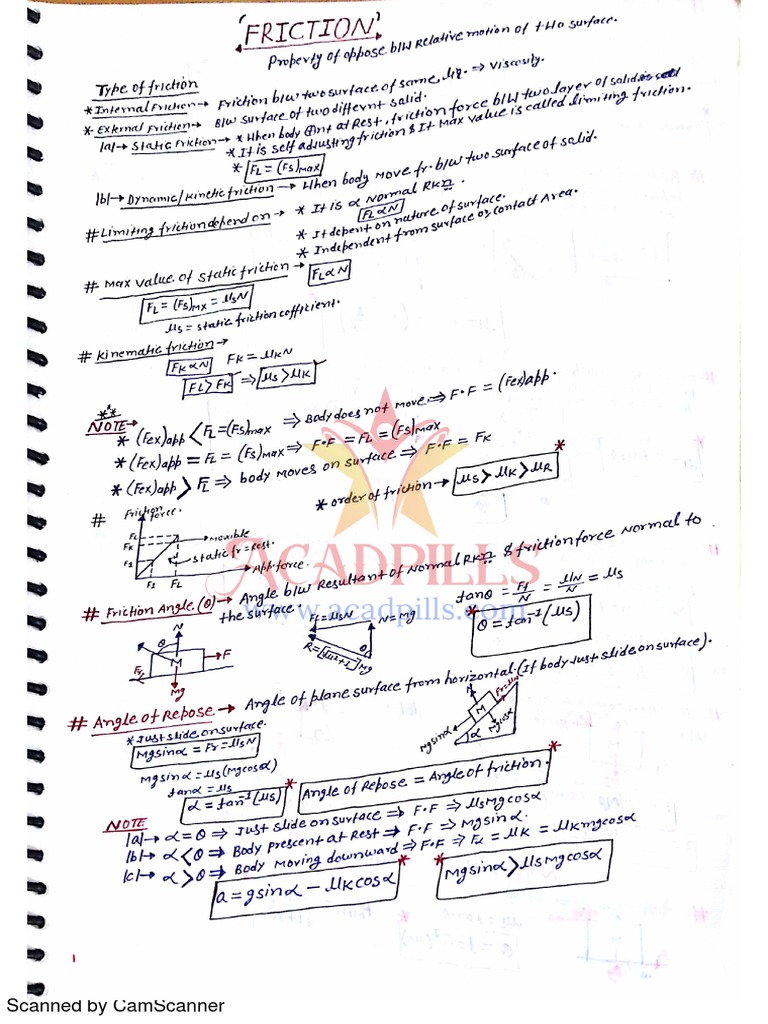 'FRICTION'
Property of oppose b/w Relative motion of two surface.
Type of friction
* Internal Friction → Friction b/w two surface of same liq. ⇒ Viscosity.
* External Friction → B/w surface of two differnt solid.
|a|→ Static Friction → * When body at Rest, friction force b/w two layer of solid is
* It is self adjusting friction & It Max value is called limiting friction.
* FL = (Fs)max
|b|→ Dynamic/Kinetic friction → When body move fr. b/w two surface of solid.
# Limiting friction depend on → * It is α Normal Rxn.
FL α N
* It depent on nature of surface.
* Independent from surface or contact Area.
# Max value of static friction → FL α N
FL = (Fs)Mx = μsN
μs = static friction cofficient.
# Kinematic friction →
FK α N FK = μKN
FL > FK ⇒ μs > μK
***
NOTE →
* (Fex)app < FL = (Fs)max ⇒ Body does not move ⇒ F.F = (Fex)app.
* (Fex)app = FL = (Fs)max ⇒ F.F = FL = (Fs)max
* (Fex)app > FL ⇒ body moves on surface ⇒ F.F = FK
* order of friction → μs > μK > μR *
# Friction force.
FL
FK
F1
→ movible
static fr = Rest.
App. force.
F1 FL
ACADPILLS
www.acadpills.com
# Friction Angle (θ) → Angle b/w Resultant of Normal Rxn & friction force Normal to
the surface.
tanθ = Ff/N = μN/N = μs
* θ = tan⁻¹(μs)
N
θ
M
F
Mg
FL = μsN
N = Mg
θ
R = [√μ²+1] Mg
# Angle of Repose → Angle of plane surface from horizontal. (If body Just slide on surface).
* Just slide on surface.
Mgsinα = Fr = μsN
Mgsinα = μs(Mgcosα)
tanα = μs
α = tan⁻¹(μs) *
N
M
Mgsinα
Mgcosα
α
Angle of Repose = Angle of friction. *
NOTE
|a|→ α = θ ⇒ Just slide on surface ⇒ F.F ⇒ μsMgcosα
|b|→ α < θ ⇒ Body prescent at Rest ⇒ F.F ⇒ Mgsinα.
|c|→ α > θ ⇒ Body Moving downward ⇒ F.F ⇒ FK = μK = μKmgcosα
a = gsinα − μKcosα *
* Mgsinα > μsMgcosα
1
Scanned by CamScanner